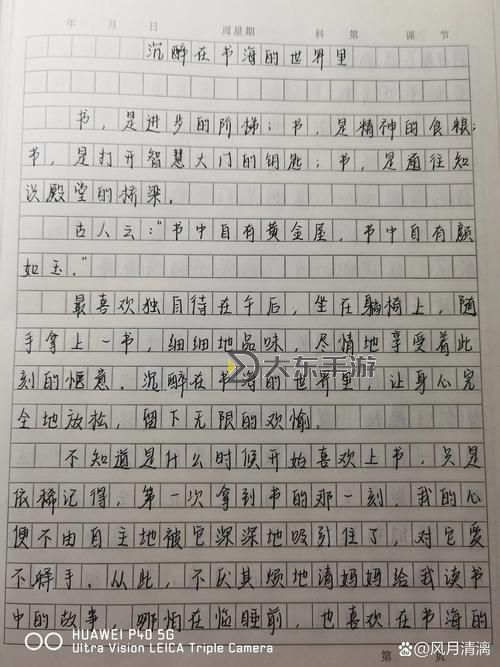 年 月 日 周星期 科第 课节
沉醉在书海的世界里
书，是进步的阶梯；书，是精神的食粮；
书，是打开智慧大门的钥匙；书，是通往知
识殿堂的桥梁。
古人云："书中自有黄金屋，书中自有颜
如玉。"
最喜欢独自待在午后，坐在躺椅上，随
手拿上一书，细细地品味，尽情地享受着此
刻的惬意。沉醉在书海的世界里，让身心完
全地放松，留下无限的欢愉。
不知道是什么时候开始喜欢上书，只是
依稀记得，第一次拿到书的那一刻，我的心
便不由自主地被它深深地吸引住了，对它爱
不释手。从此，不厌其烦地请妈妈给我读书
中的故事，哪怕在临睡前，也喜欢在书海的
大东手游
HUAWEI P40 5G
Ultra Vision LEICA Triple Camera
第 页
@风月清漓